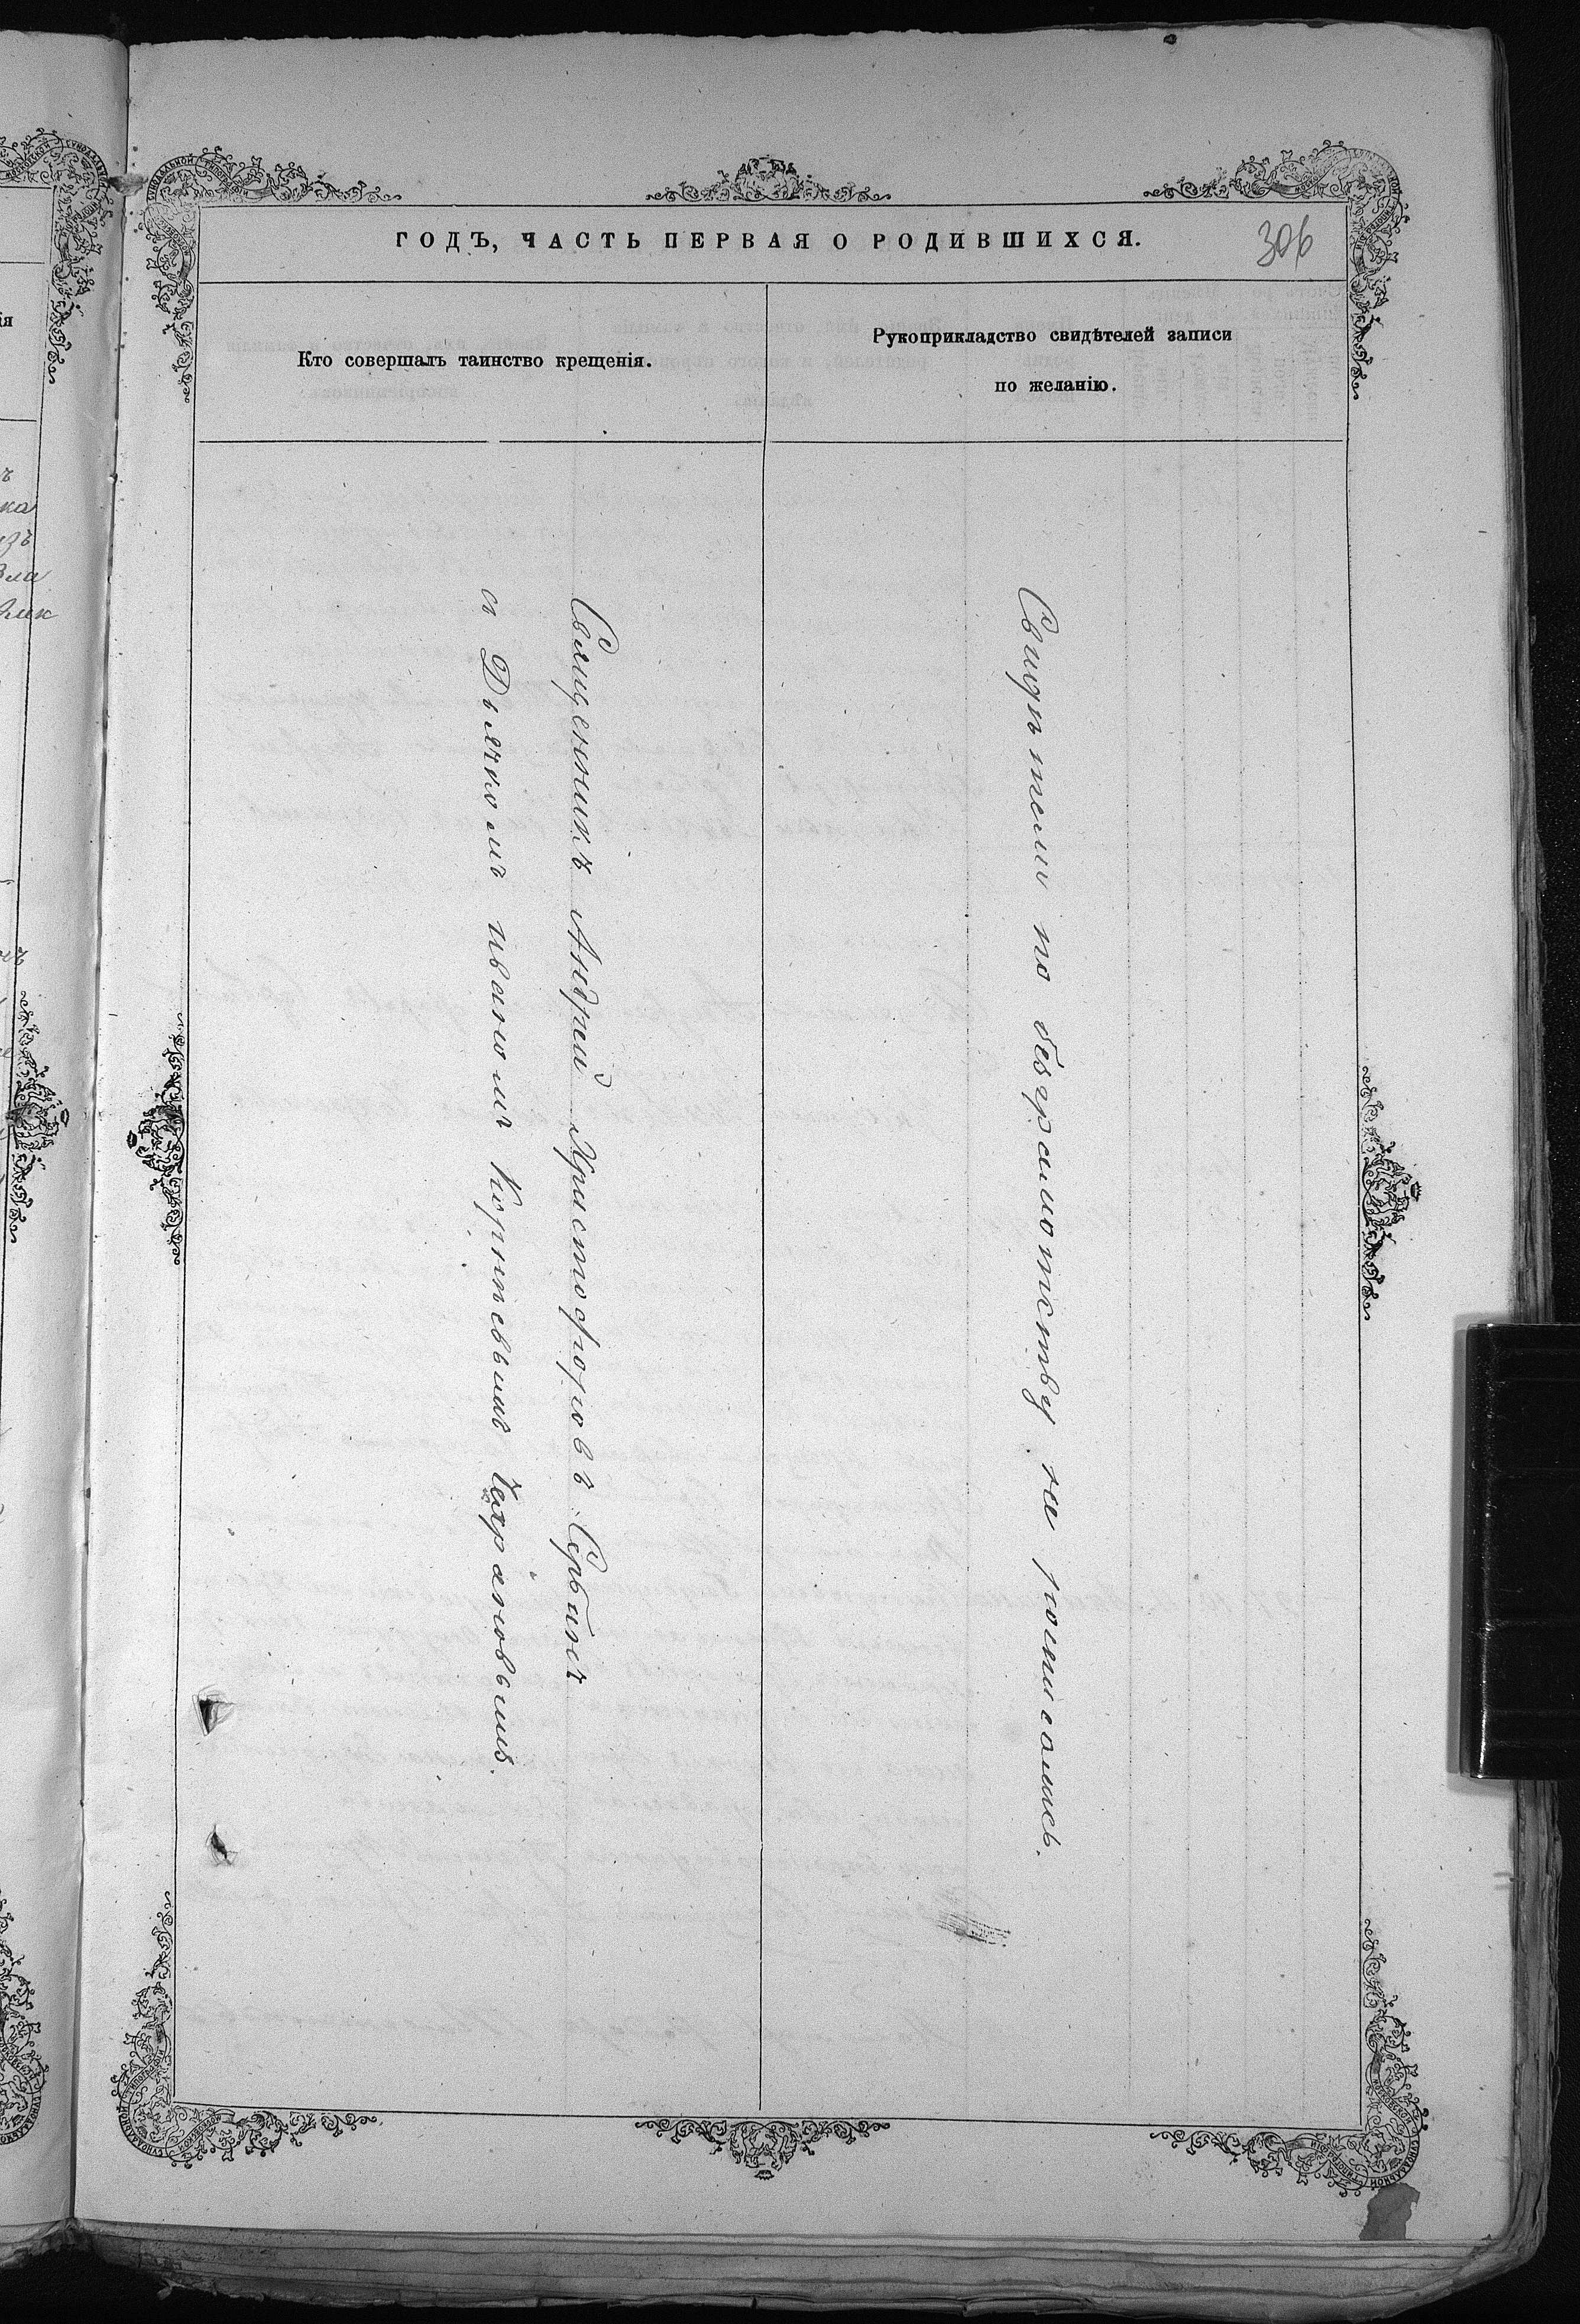 ГОДЪ, ЧАСТЬ ПЕРВАЯ О РОДИВШИХСЯ.
306
Кто совершалъ таинство крещенія.
Рукоприкладство свидѣтелей записи
по желанію.
Священникъ Андрей Христофоровъ Сербинъ
с Дьячкомъ иваномъ Корнѣевымъ
Свидѣтели по безграмотству не росписались.